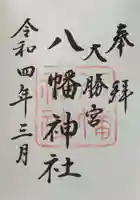 奉拝
大勝宮
八幡神社
令和四年三月